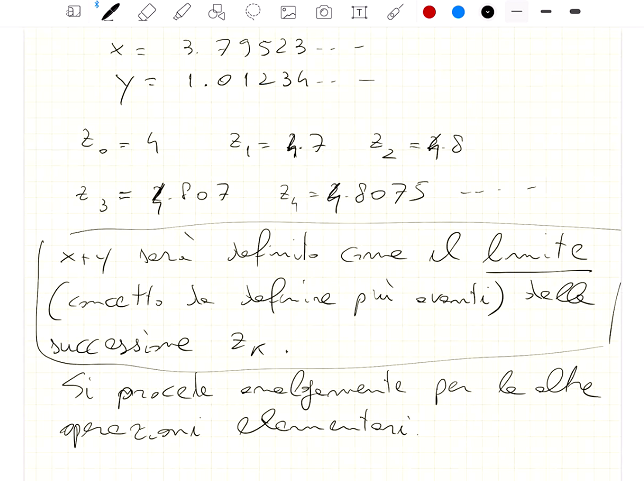 x = 3.79523... -
y = 1.01234... -
z₀ = 4 z₁ = 4.7 z₂ = 4.8
z₃ = 4.807 z₄ = 4.8075 ---- -
x+y sarà definito come il limite
(concetto da definire più avanti) della
successione zₖ.
Si procede analogamente per le altre
operazioni elementari.